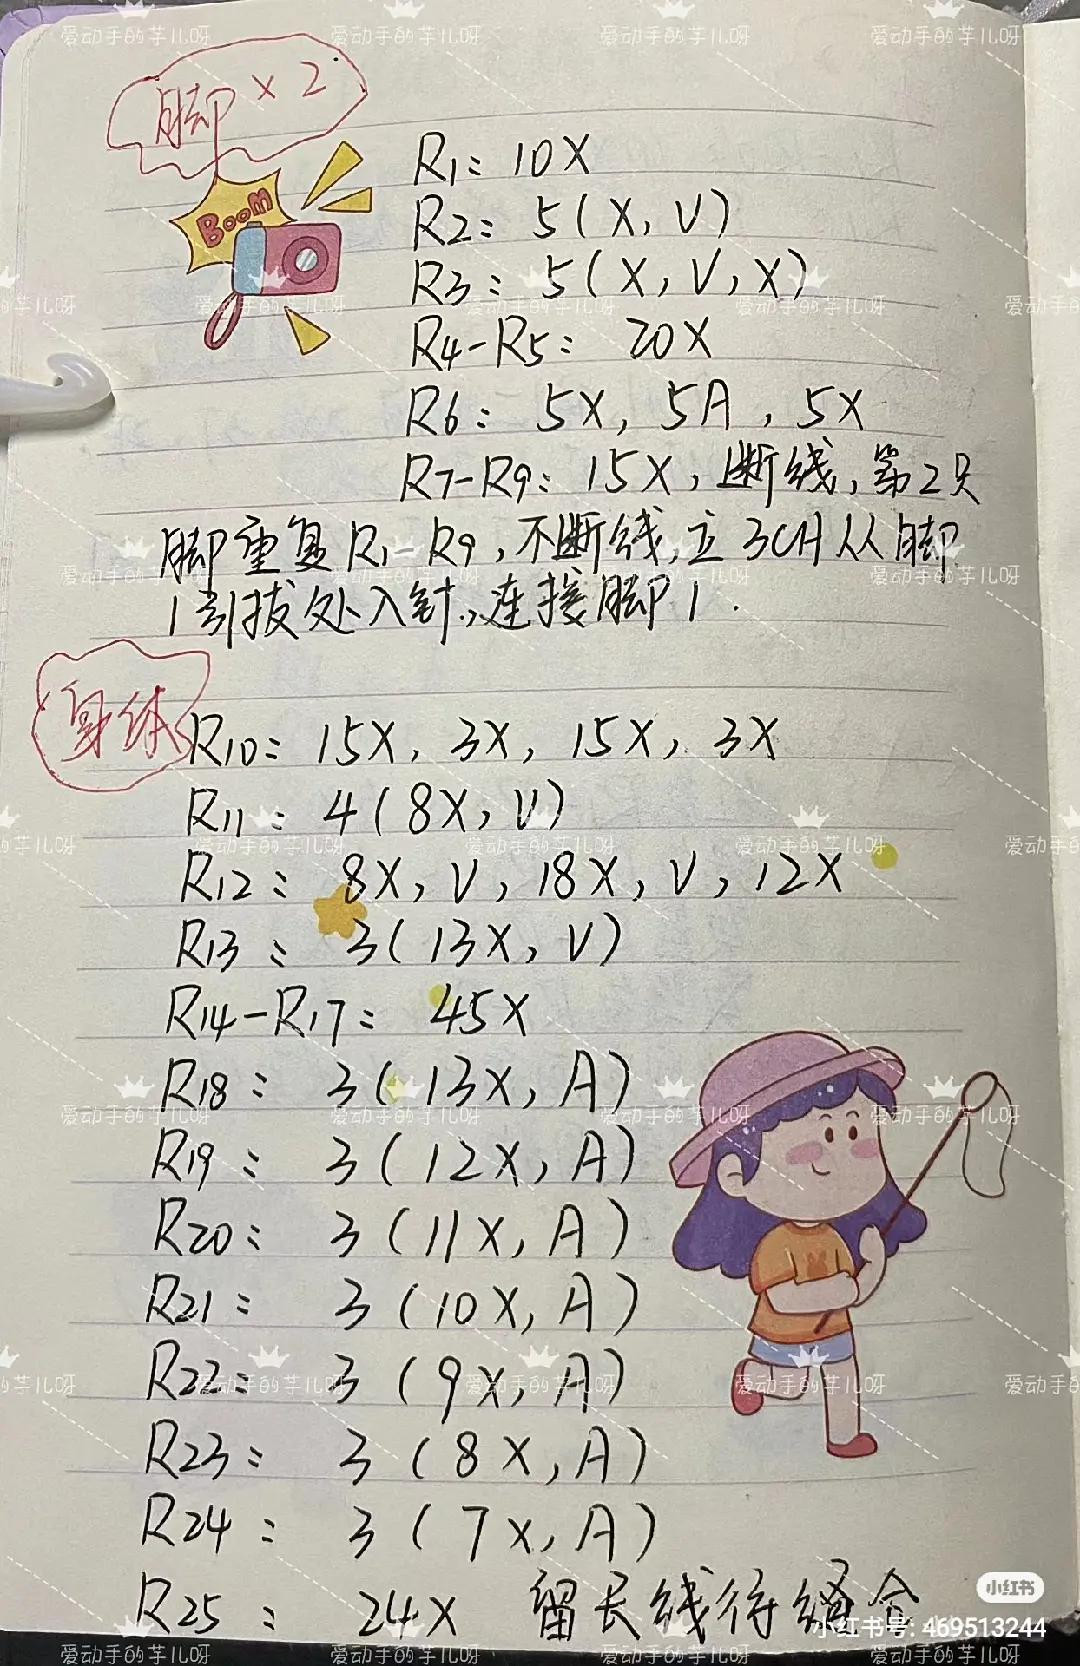 脚×2
R1: 10X
BOOM
R2: 5(X, V)
R3: 5(X, V, X)
R4-R5: 20X
R6: 5X, 5A, 5X
R7-R9: 15X, 断线, 第2只
脚重复R1-R9, 不断线, 立3CH从脚
1引拔处入针, 连接脚1.
身体
R10: 15X, 3X, 15X, 3X
R11: 4(8X, V)
R12: 8X, V, 18X, V, 12X
R13: 3(13X, V)
R14-R17: 45X
R18: 3(13X, A)
R19: 3(12X, A)
R20: 3(11X, A)
R21: 3(10X, A)
R22: 3(9X, A)
R23: 3(8X, A)
R24: 3(7X, A)
R25: 24X 留长线待缝合
小红书
小红书号: 469513244
爱动手的芋儿呀